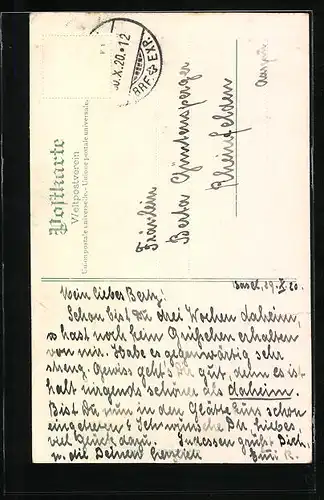 Postkarte
Weltpostverein
Union postale universelle. Unione postale universale.
30.X.20.-12
BRF. EXP.
Fräulein
Berta Güntensperger
Rheinfelden
Aargau
Basel, 29. X. 20.
Mein liebes Berty!
Schon bist Du drei Wochen daheim,
u hast noch kein Grüßchen erhalten
von mir. Habe es gegenwärtig sehr
streng. Gewiss geht's Dir gut, denn es ist
halt nirgends schöner als daheim.
Bist Du nun in den Glättekurs schon
eingetreten & ich wünsche Dir, liebes,
viel Glück dazu. Inzwischen grüßt Dich
u. die Deinen herzlich